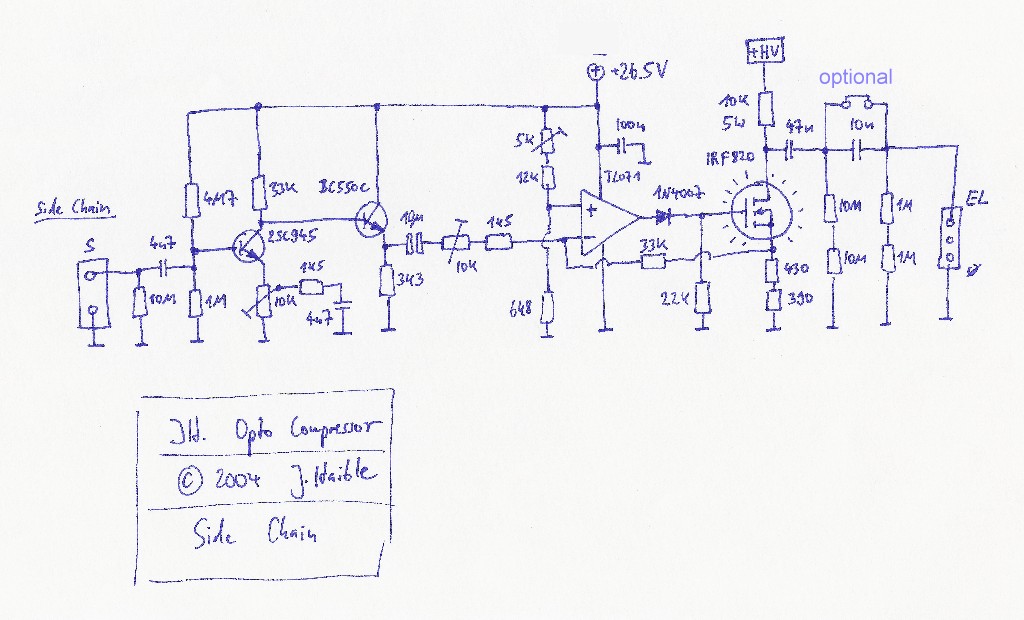 +26.5V
+HV
optional
10K
5W
47n
10n
5k
100n
IRF820
12K
TL071
1N4007
Side Chain
4M7
33K
BC550C
S
4n7
2SC945
10µ
1k5
EL
1k5
10K
33K
10M
1M
10M
1M
10K
3k3
6k8
22k
430
390
10M
1M
4n7
JH. Opto Compressor
© 2004 J. Haible
Side Chain